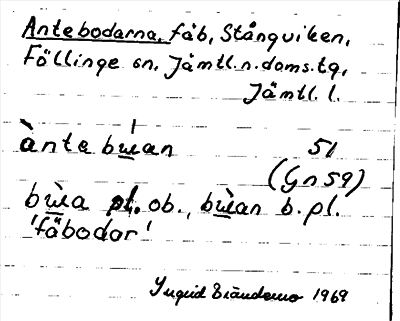 Antebodarna, fäb, Stångviken,
Föllinge sn, Jämtl.n.doms.tg,
Jämtl. l.
àntebɯan 51
(Gn 59)
bɯ̀a pl. ob., bɯ̀an b. pl.
'fäbodar'
Ingrid 1969